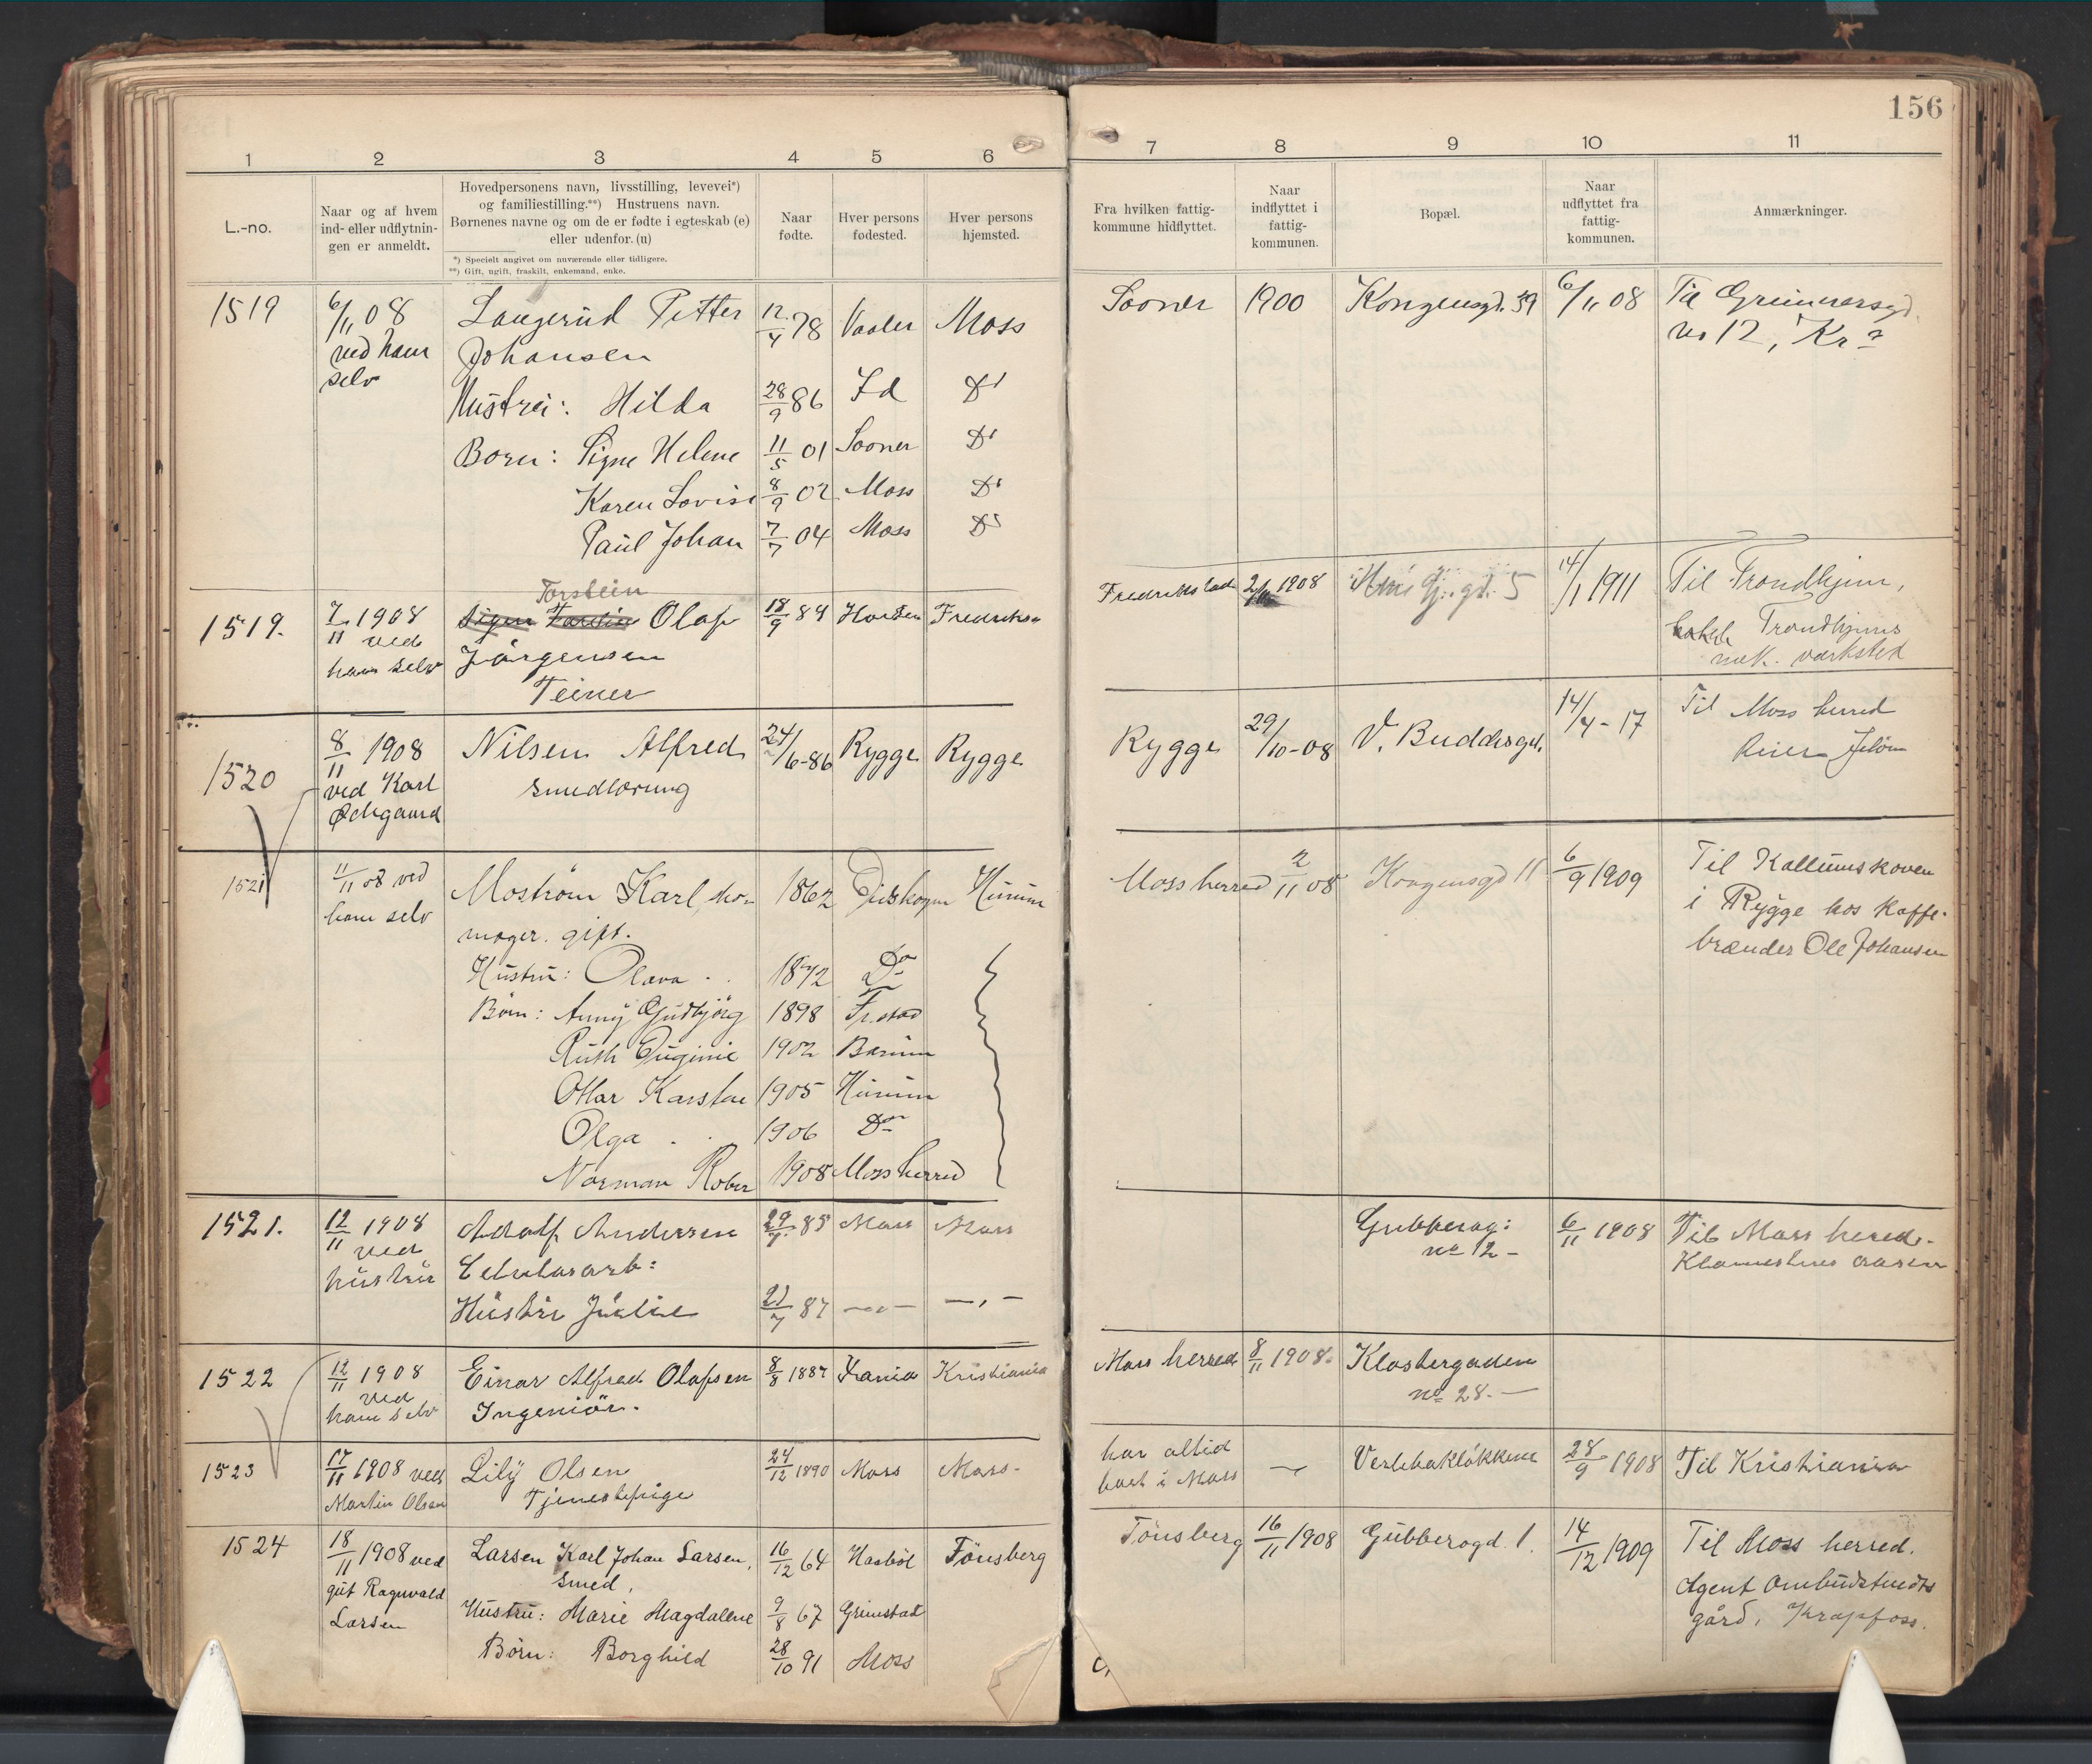 156
1 2 3 4 5 6
7 8 9 10 11
L.-no.
Naar og af hvem
ind- eller udflytnin-
gen er anmeldt.
Hovedpersonens navn, livsstilling, levevei*)
og familiestilling.**) Hustruens navn.
Børnenes navne og om de er fødte i egteskab (e)
eller udenfor. (u)
*) Specielt angivet om nuværende eller tidligere.
**) Gift, ugift, fraskilt, enkemand, enke.
Naar
fødte.
Hver persons
fødested.
Hver persons
hjemsted.
Fra hvilken fattig-
kommune hidflyttet.
Naar
indflyttet i
fattig-
kommunen.
Bopæl.
Naar
udflyttet fra
fattig-
kommunen.
Anmærkninger.
1519 6/11 08 Langerud Petter 12/4 78 Vaaler Moss Sooner 1900 Kongensgd. 39 6/11 08 Til Grünnersgd.
ved ham Johansen no 12, Kr a
selv
Hustru: Hilda 28/9 86 Id Do
Born: Signe Helene 11/5 01 Sooner Do
Karen Lovise 8/9 02 Moss Do
Paul Johan 7/7 04 Moss Do
Torstein
1519. 7/11 1908 Olaf 18/9 89 Horten Fredriks- Fredrikstad 2/11 1908 5 14/1 1911 Til Trondhjem,
ved Jørgensen Trondhjems
ham selv mek. værksted
1520 8/11 1908 Nilsen Alfred 24/6-86 Rygge Rygge Rygge 29/10-08 V. Buddesgd. 14/4-17 Til Moss herred
ved Karl smedlærling Jeløen
Ødegaard
1521 11/11 08 ved Moström Karl, sko- 1862 Hurum Moss herred 2/11 08 Kongensgd 11 6/9 1909 Til Kallumskoven
ham selv mager. gift. i Rygge hos kaffe-
brænder Ole Johansen
Hustru: Olava 1872 Do
Börn: Anny Gudbjörg 1898 Fr.stad
Ruth Euginie 1902 Bærum
Ottar Karsten 1905 Hurum
Olga 1906 Do
Norman Rober 1908 Moss herred
1521. 12/11 1908 Adolf Andersen 85 Moss Moss Gubberog: 6/11 1908 Til Moss hered-
ved Celulosarb: no 12 -
hustru
Hustru Julie 21/7 87 -,,- -,,-
1522 12/11 1908 Einar Alfred Olafsen 8/8 1887 Xania Kristiania Moss herred 8/11 1908. Klostergaden
ved Ingeniör. no 28. -
ham selv
1523 17/11 1908 ved Lily Olsen 24/12 1890 Moss Moss- har altid - Verlebakløkkene 28/9 1908 Til Kristiania
Martin Olsen Tjenestepige boet i Moss
1524 18/11 1908 ved Larsen Karl Johan Larsen, 16/12 64 Tönsberg Tönsberg 16/11 1908 Gubberogd 1. 14/12 1909 Til Moss herred.
gut Ragnvald smed, Agent
Larsen Hustru: Marie Magdalene 9/8 67 Grimstad gård, Krapfoss.
Börn: Borghild 28/10 91 Moss